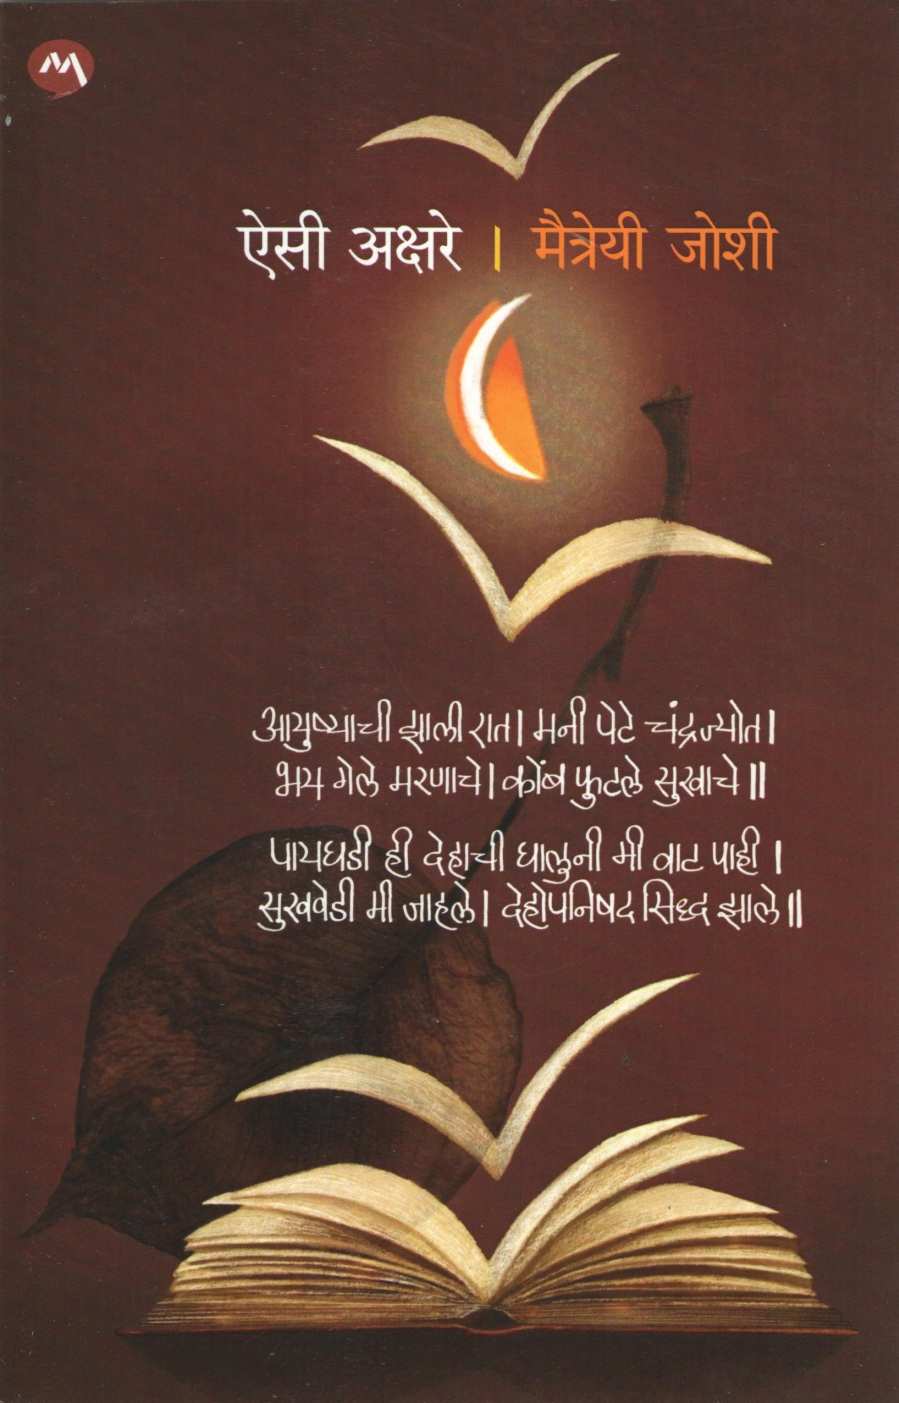 ऐसी अक्षरे | मैत्रेयी जोशी
आयुष्याची झाली रात। मनी पेटे चंद्रज्योत।
भय गेले मरणाचे। कोंब फुटले सुखाचे॥
पायघडी ही देहाची घालुनी मी वाट पाही।
सुखवेडी मी जाहले। देहोपनिषद सिध्द झाले॥